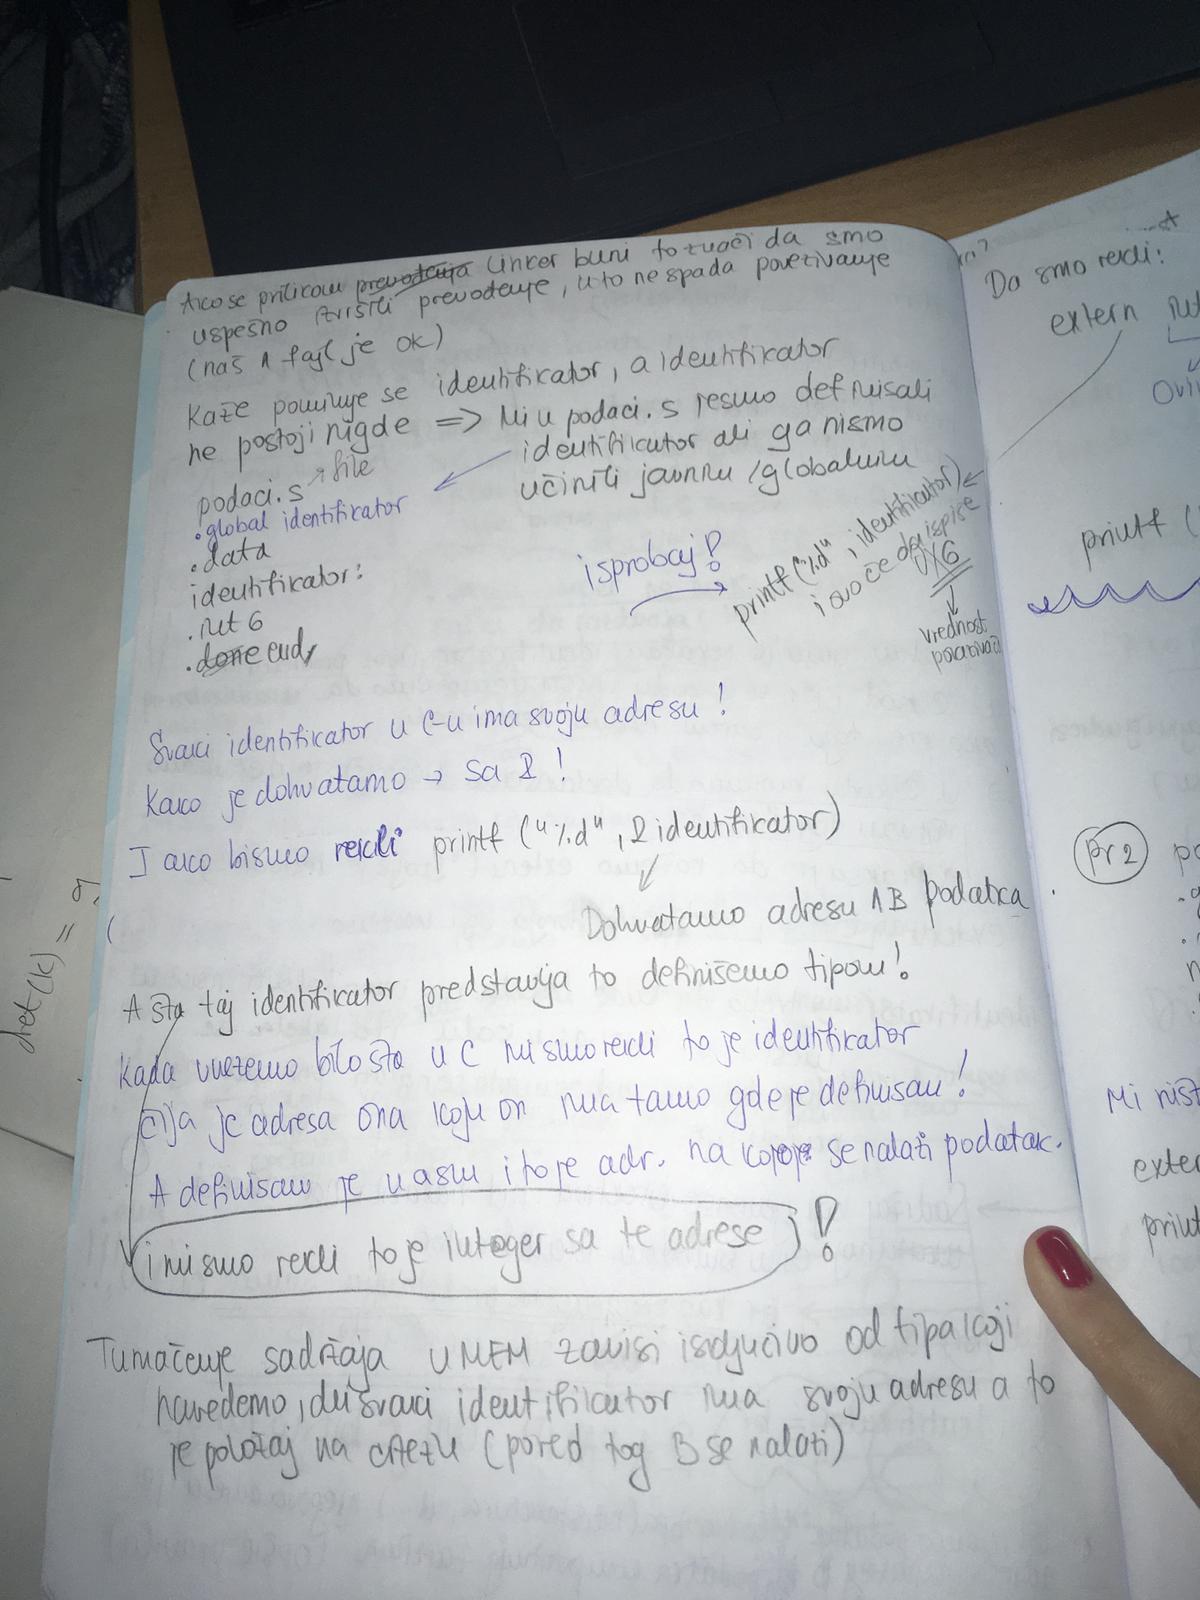 Ako se prilikom prevođenja linker buni to znači da smo
uspešno izvršili prevođenje, u to ne spada povezivanje
(naš 1 fajl je OK)
Kaže pominje se identifikator, a identifikator
ne postoji nigde => Mi u podaci.s jesmo definisali
identifikator ali ga nismo
učinili javnim/globalnim
podaci.s → file
.global identifikator
.data
identifikator:
.int 6
.done end
isprobaj!
printf("%d", identifikator)
i ovo će da ispise
0x6
vrednost
Svaki identifikator u C-u ima svoju adresu!
Kako je dohvatamo → sa &!
I ako bismo rekli printf("%d", & identifikator)
Dohvatamo adresu 1B podatka
A šta taj identifikator predstavlja to definišemo tipom!
Kada uvezemo bilo šta u C mi smo rekli to je identifikator
čija je adresa ona koju on ima tamo gde je definisan!
A definisan je u asm i to je adr. na kojoj se nalazi podatak.
i mi smo rekli to je integer sa te adrese !
Tumačenje sadržaja u MEM zavisi isključivo od tipa koji
navedemo, svaki identifikator ima svoju adresu a to
je položaj na crtežu (pored tog B se nalazi)
det(k) =
Da smo rekli:
extern
printf (
pr2
Mi